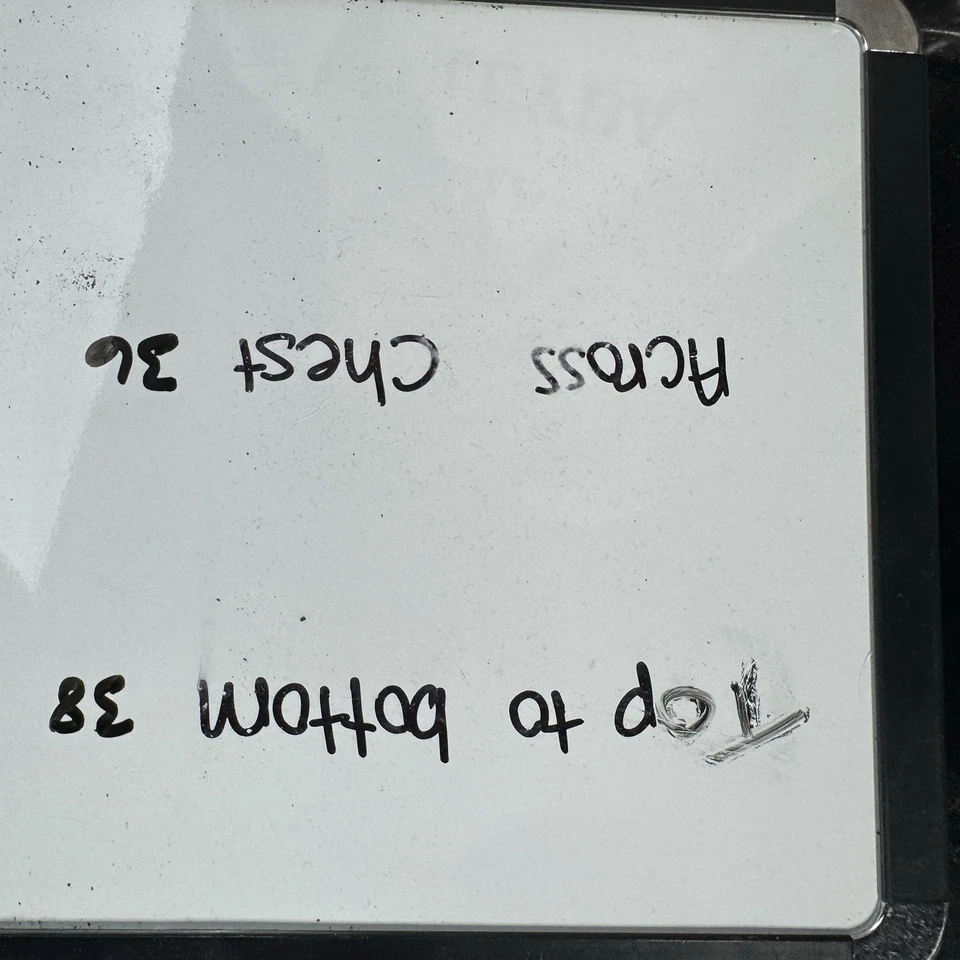 Top to bottom 38
Across Chest 36